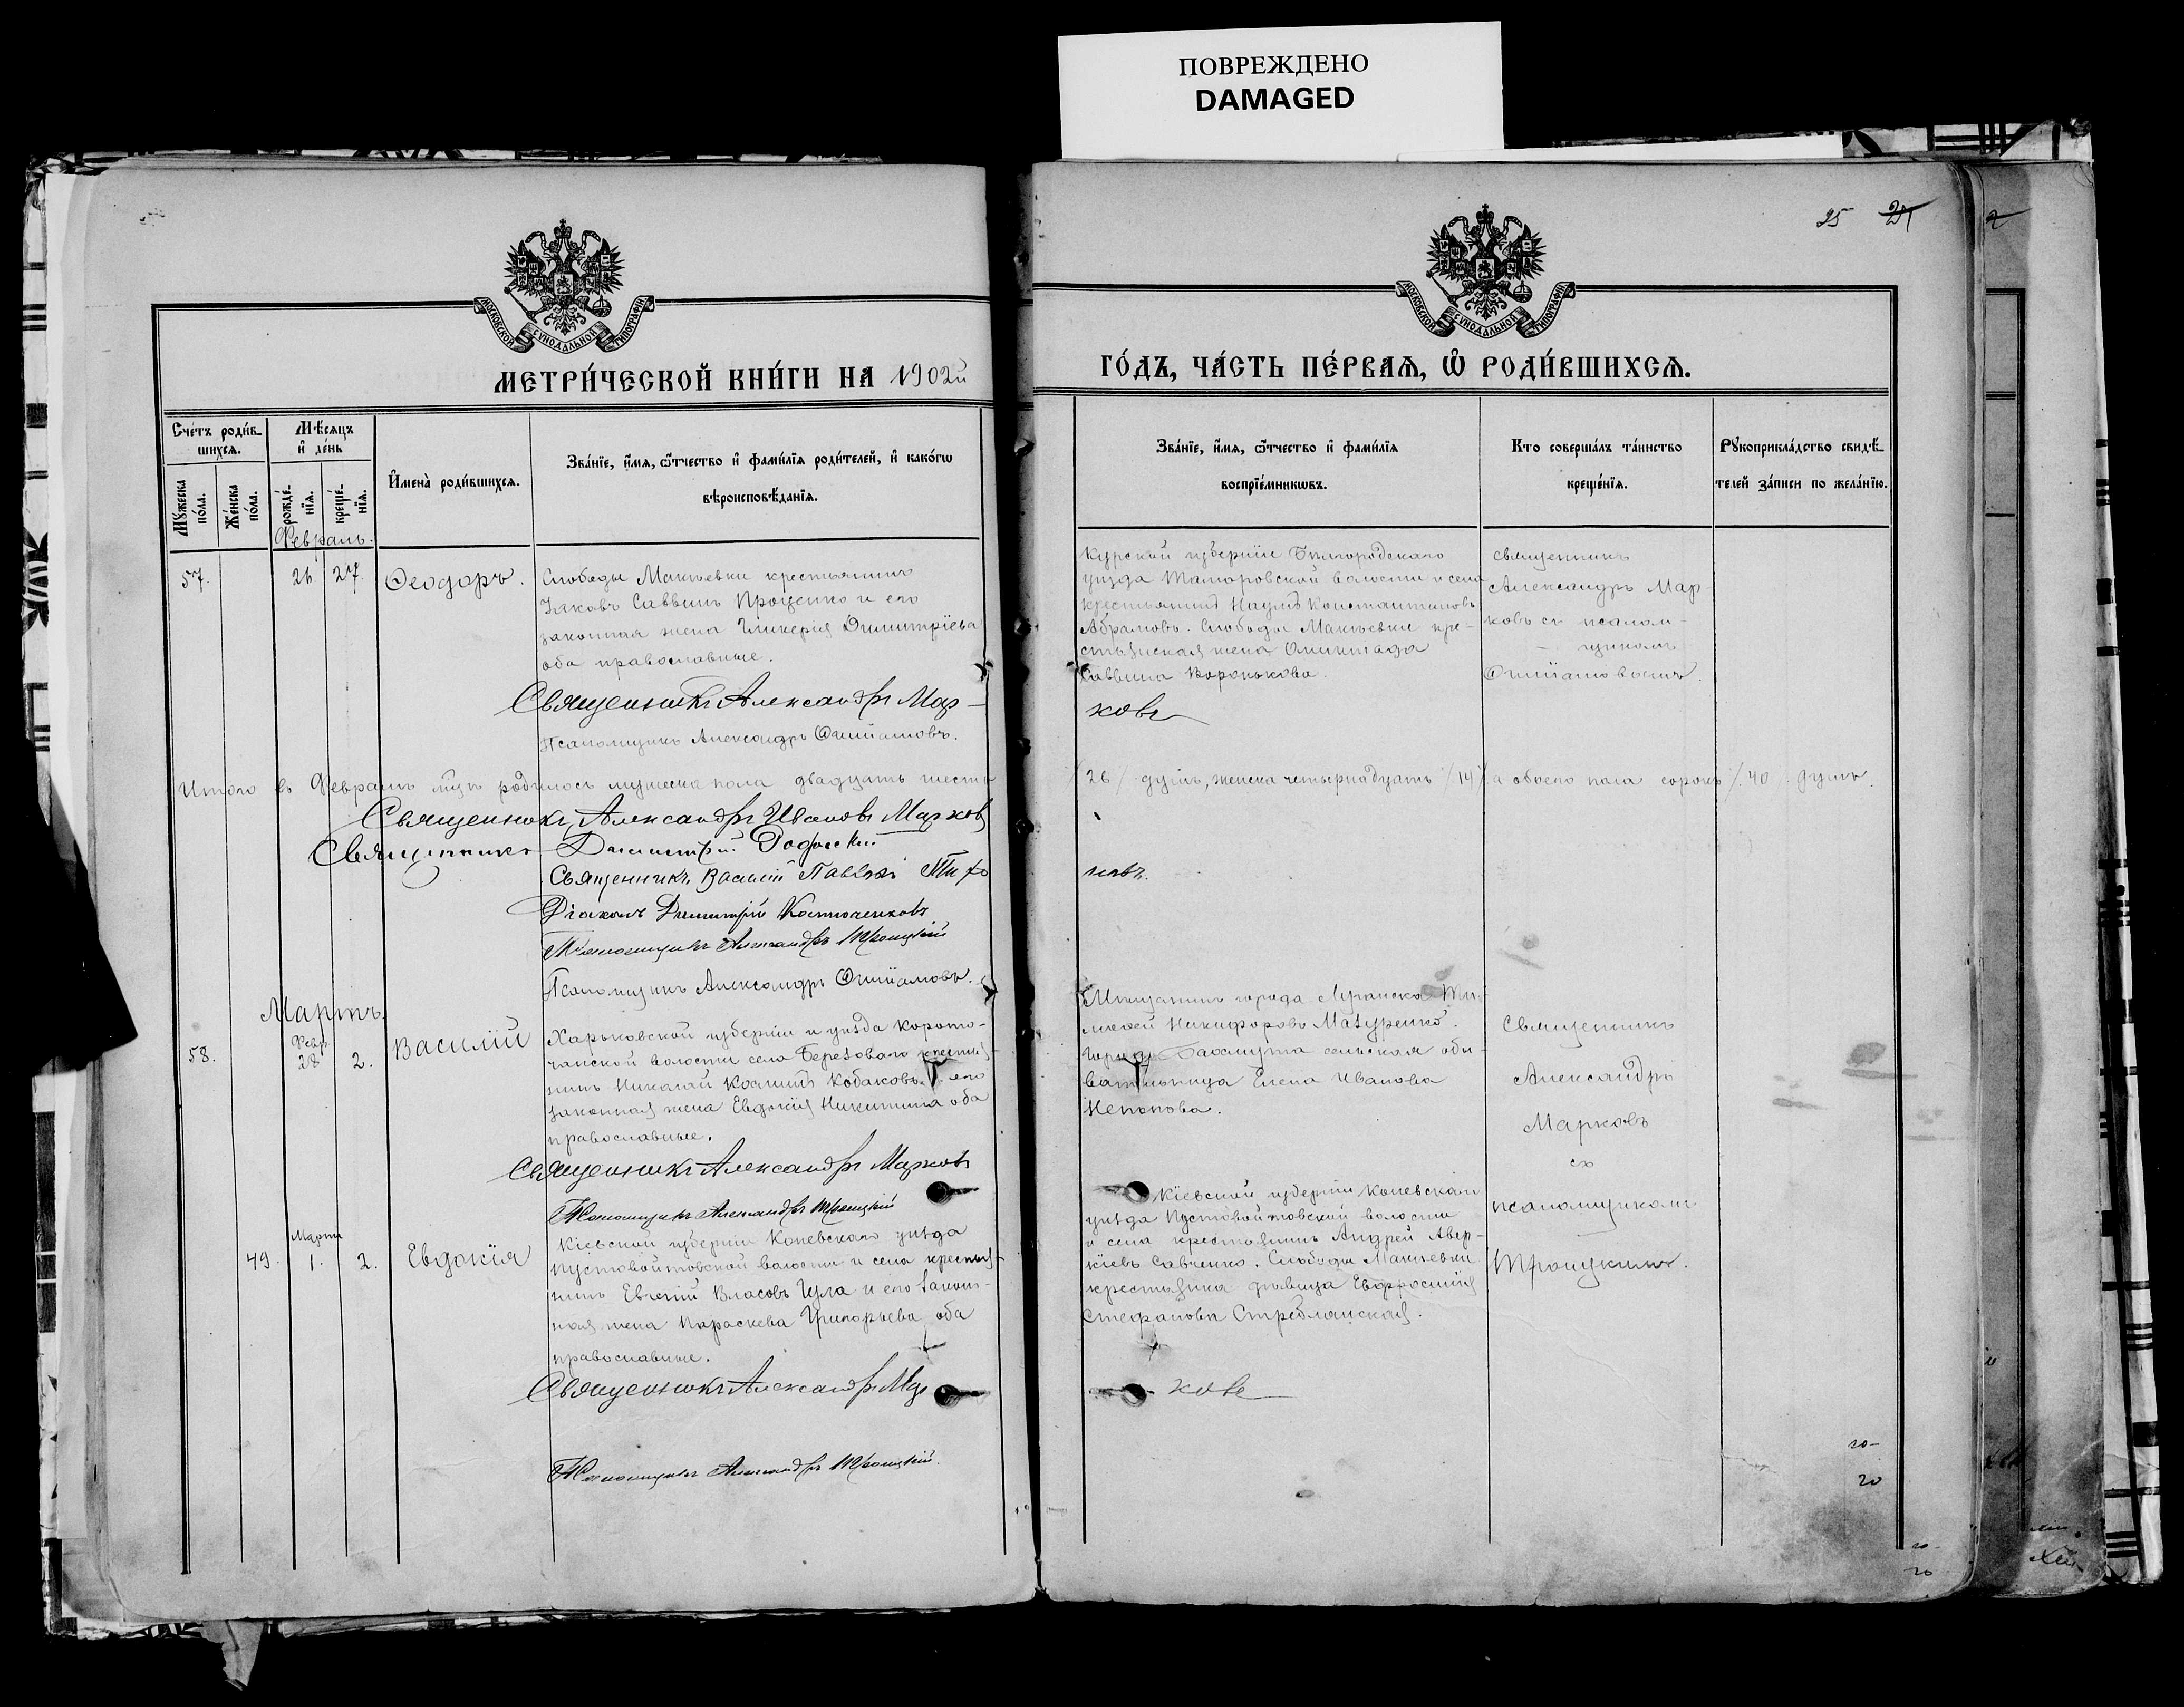 ПОВРЕЖДЕНО
DAMAGED
25 27
МОСКОВСКОЙ СѴНОДАЛЬНОЙ ТИПОГРАФІИ
МОСКОВСКОЙ СѴНОДАЛЬНОЙ ТИПОГРАФІИ
МЕТРИ́ЧЕСКОЙ КНИ́ГИ НА 1902й
ГО́ДЪ, ЧА́СТЬ ПЕ́РВАѦ, Ѡ҆ РОДИ́ВШИХСѦ.
Сче́тъ роди́в-
шихсѧ.
Мꙋ́жеска по́ла.
Же́нска по́ла.
Мѣ́сѧцъ
и҆ де́нь
рожде́-
нїѧ.
креще́-
нїѧ.
И҆мена̀ роди́вшихсѧ.
Зва́нїе, и҆́мѧ, ѻ҆́тчество и҆ фами́лїѧ роди́телей, и҆ како́гѡ
вѣроисповѣ́данїѧ.
Зва́нїе, и҆́мѧ, ѻ҆́тчество и҆ фами́лїѧ
воспрїе́мникѡвъ.
Кто соверша́лъ та́инство
креще́нїѧ.
Рꙋкоприкла́дство свидѣ́-
телей за́писи по жела́нїю.
Февраль.
57. 26 27. Ѳеодоръ.
Слободы Макѣевки крестьянинъ
Іаковъ Саввинъ Проценко и его
законная жена Гликерія Димитріева
оба православные.
Священникъ Александръ Мар-
Псаломщикъ Александръ
Курской губерніи Бѣлгородскаго
уѣзда Томаровской волости и села
крестьянинъ Наумъ Константиновъ
Абрамовъ. Слободы Макѣевки кре-
стьянская жена Олимпіада
Саввина Воронькова.
ковъ
священникъ
Александръ Мар-
ковъ съ псалом-
щикомъ
Итого въ Февралѣ м-цѣ родилось мужеска пола двадцать шесть
/26/ душъ, женска четырнадцать /14/ а обоего пола сорокъ /40/ душъ.
Священникъ Александръ Ивановъ Марковъ
Священникъ Димитрій
Священникъ Василій Павловъ Тихо
новъ.
Діаконъ Димитрій Костюченковъ
Псаломщикъ Александръ Троицкій
Псаломщикъ Александръ
Мартъ.
58. Февр. 28 2. Василій
Харьковской губерніи и уѣзда Корото-
чанской волости села Березоваго крестья-
нинъ Николай Козминъ Кобаковъ и его
законная жена Евдокія Никитина оба
православные.
Священникъ Александръ Марковъ
Псаломщикъ Александръ Троицкій
Мѣщанинъ города Луганска Ти-
моѳей Никифоровъ Мазуренко.
Города Бахмута сельская обы-
вательница Елена Иванова
Священникъ
Александръ
Марковъ
съ
псаломщикомъ
Троицкимъ.
49. Марта 1. 2. Евдокія
Кіевской губерніи Каневскаго уѣзда
Пустовойтовской волости и села крестья-
нинъ Евгеній Власовъ Гула и его закон-
ная жена Параскева Григорьева оба
православные.
Священникъ Александръ Мар
Псаломщикъ Александръ Троицкій.
Кіевской губерніи Каневскаго
уѣзда Пустовойтовской волости
и села крестьянинъ Андрей Авер-
кіевъ Савченко. Слободы Макѣевки
крестьянка дѣвица Евфросинія
Стефанова
ковъ